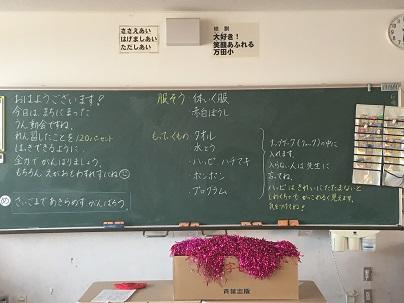 ささえあい
はげましあい
ただしあい
校訓
大好き！
笑顔あふれる
万田小
おはようございます！
今日は、まちにまった
うん動会ですね。
れん習したことを120パーセント
はっきできるように、
全力でがんばりましょう。
もちろん えがおもわすれずにね
め さいごまであきらめず がんばろう。
服そう 体いく服
赤白ぼうし
もっていくもの タオル
水とう
ハッピ ハチマキ
ポンポン
プログラム
ナップザック(リュック)の中に
入れます。
入らない人は先生に
言ってね。
ハッピは きれいにたたまないと
しわくちゃで かっこわるく見えます。
気をつけてね！
青葉出版